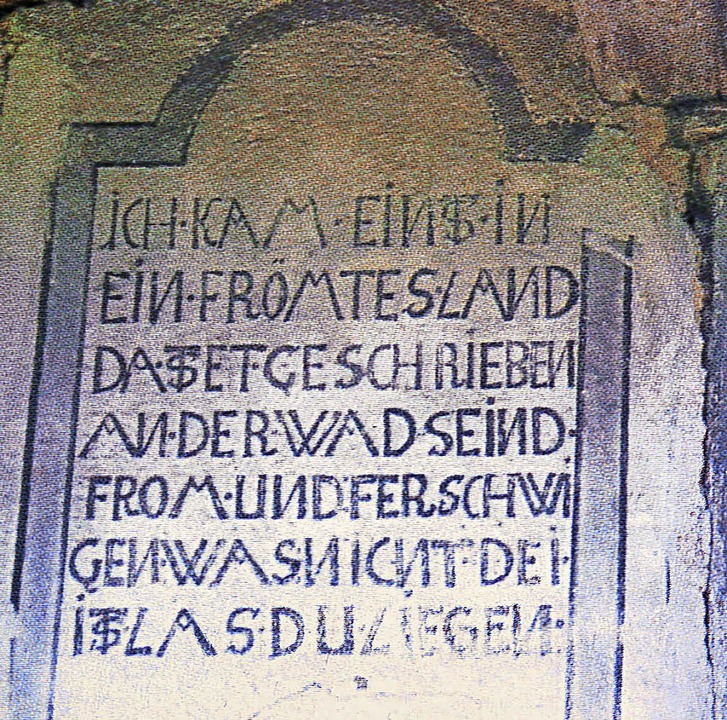 ICH·KAM·EINST·IN
EIN·FRÖMTES·LAND
DA·STET·GESCHRIEBEN
AN·DER·WAD·SEIND·
FROM·UND·FERSCHWI
GEN·WAS·NICHT·DEI·
IST LAS·DU·LIEGEN·